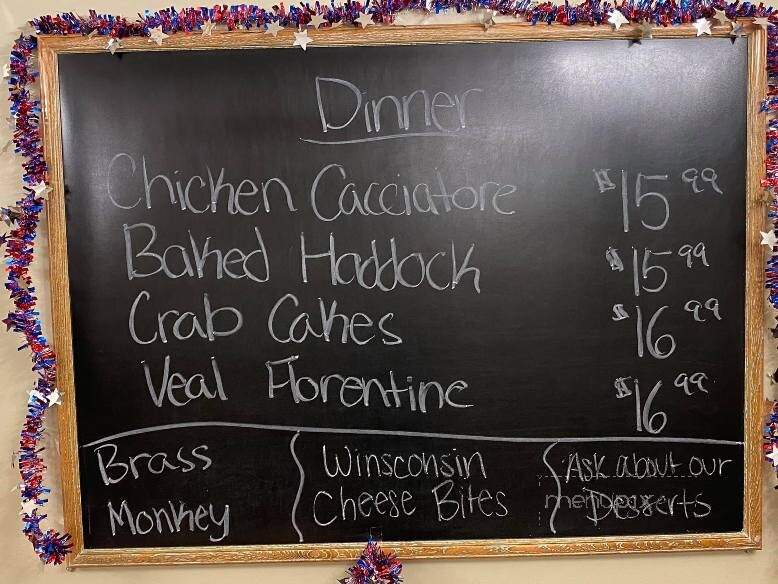 Dinner
Chicken Cacciatore $15.99
Baked Haddock $15.99
Crab Cakes $16.99
Veal Florentine $16.99
Brass
Monkey
Winsconsin
Cheese Bites
Ask about our
Desserts